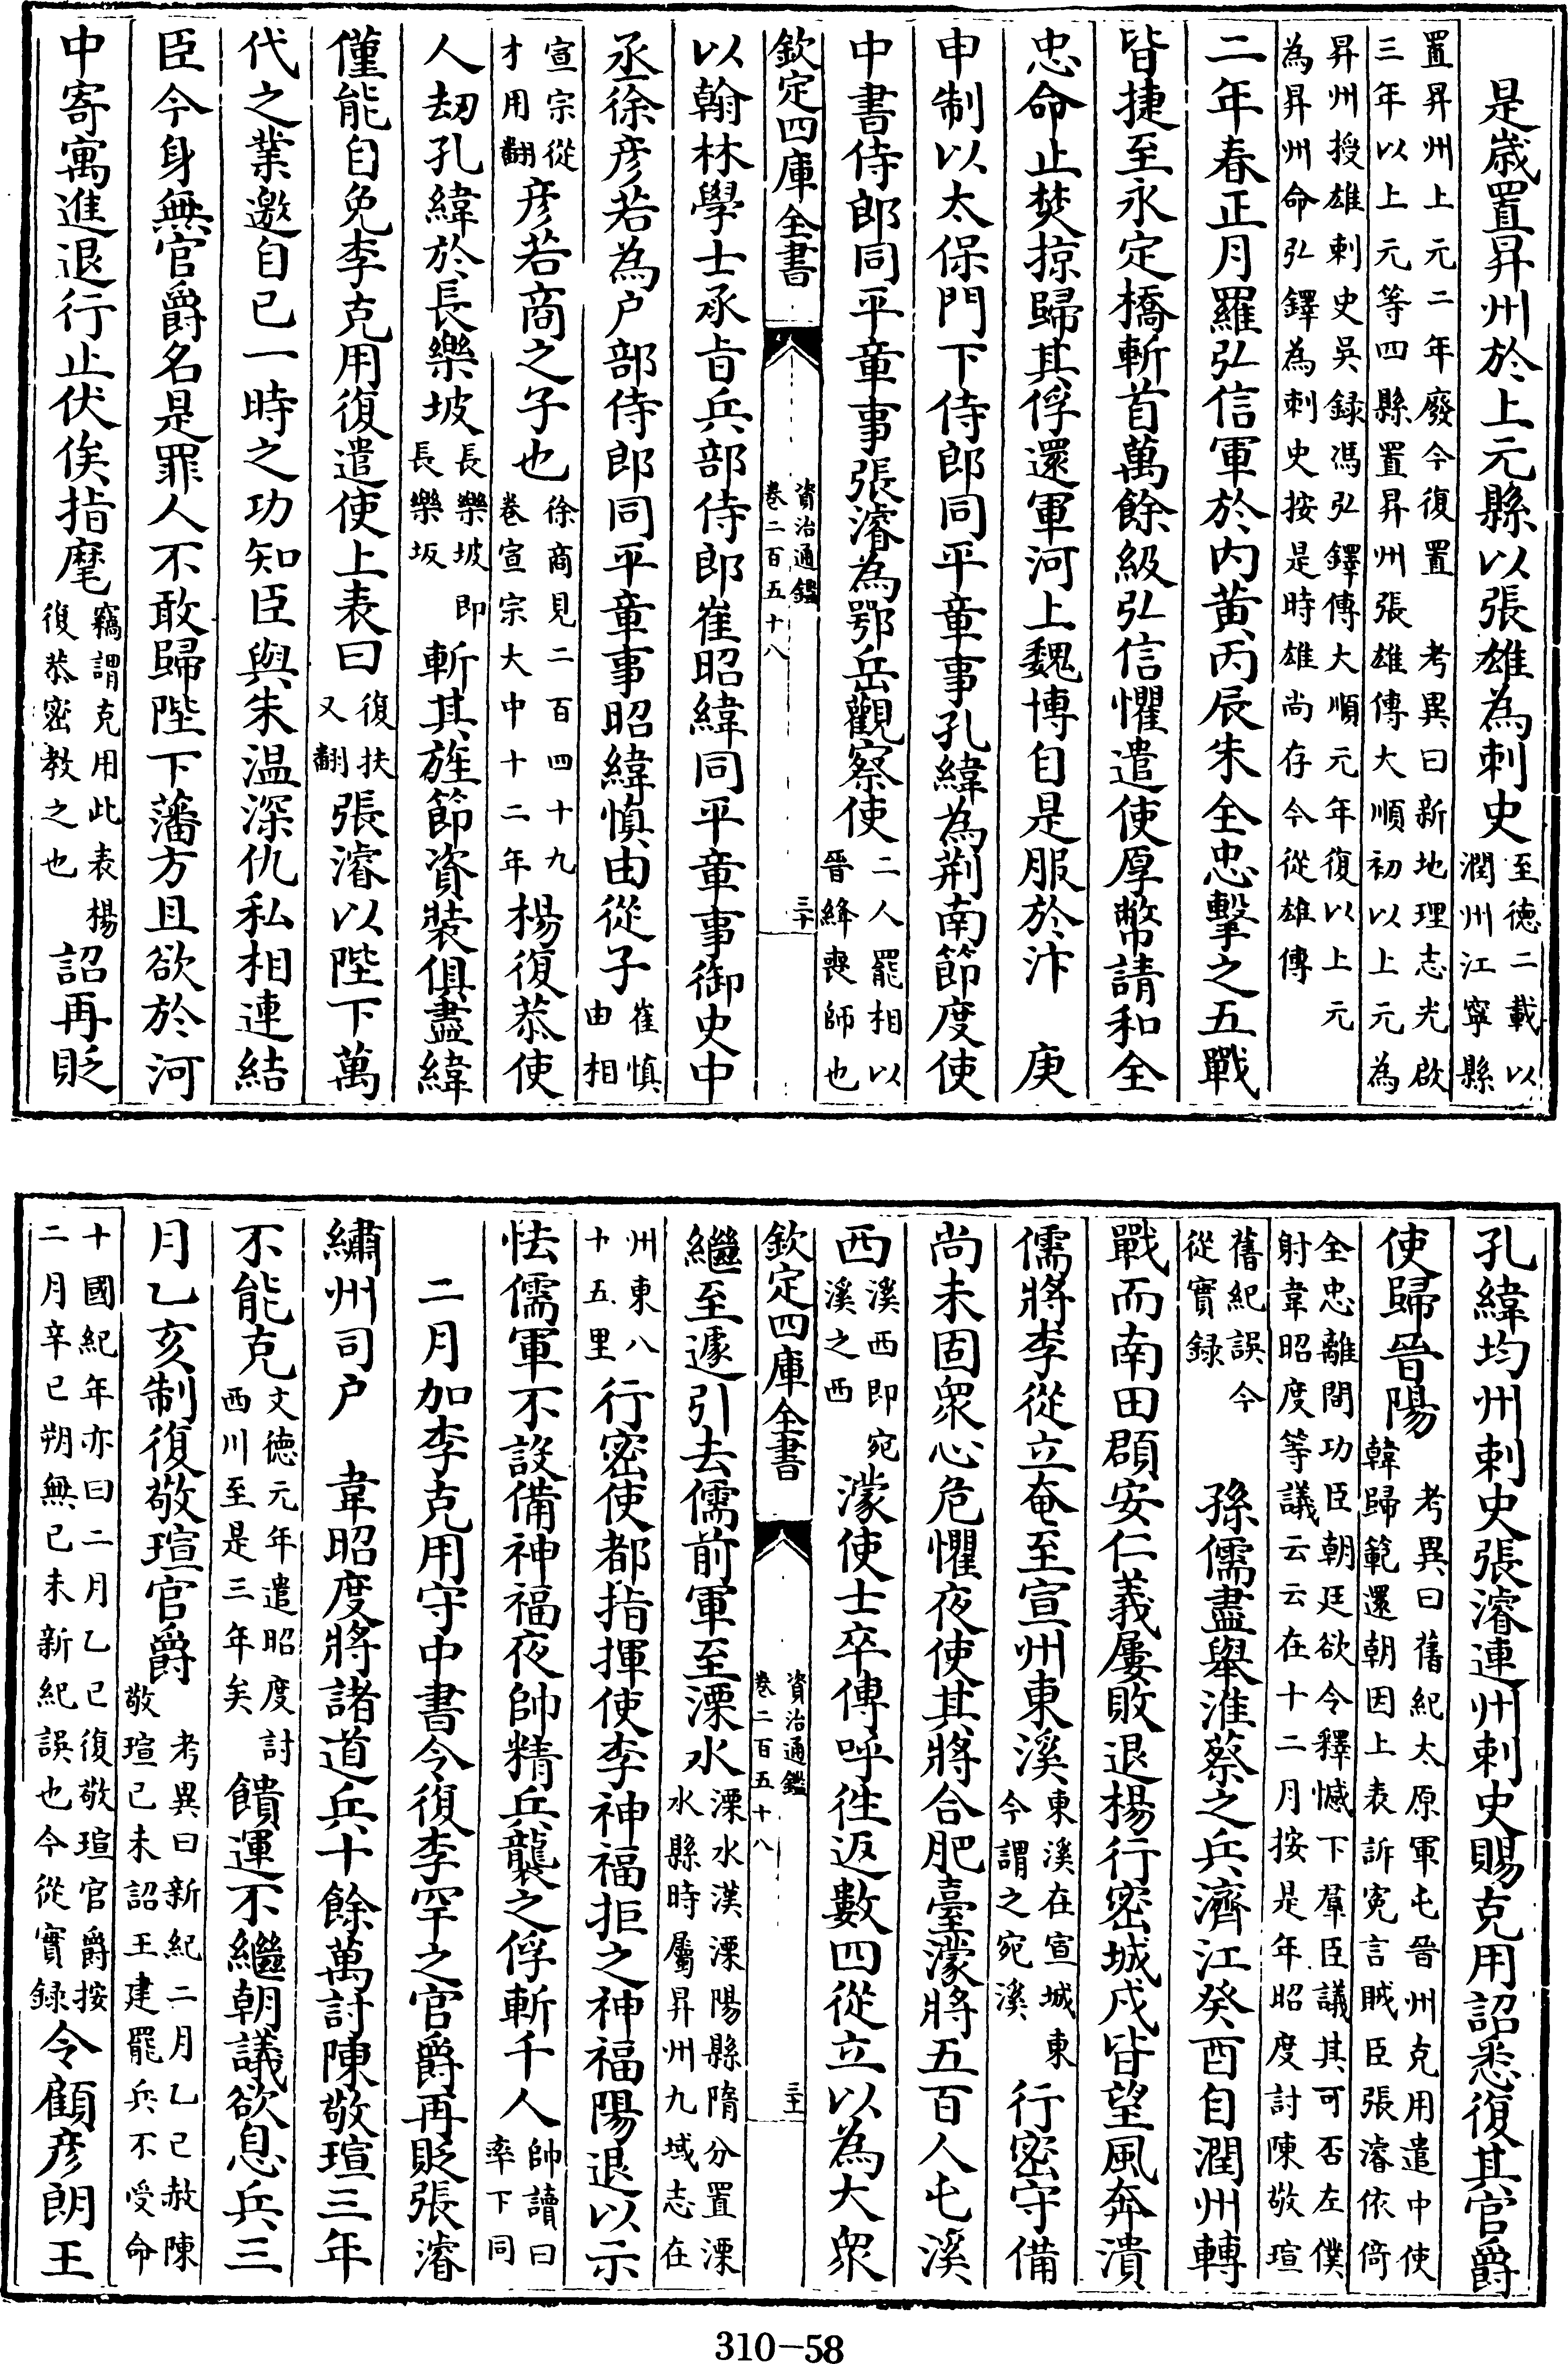 是歲置昇州於上元縣以張雄為刺史至德二載以潤州江寧縣
置昇州上元二年廢今復置 考異曰新地理志光啟三年以上元等四縣置昇州張雄傳大順初以上元為
昇州授雄刺史吳録馮弘鐸傳大順元年復以上元為昇州命弘鐸為刺史按是時雄尚存今從雄傳
二年春正月羅弘信軍於内黄丙辰朱全忠擊之五戰
皆捷至永定橋斬首萬餘級弘信懼遣使厚幣請和全
忠命止焚掠歸其俘還軍河上魏博自是服於汴 庚
申制以太保門下侍郎同平章事孔緯為荆南節度使
中書侍郎同平章事張濬為鄂岳觀察使二人罷相以晉絳喪師也
欽定四庫全書 資治通鑑卷二百五十八 三十
以翰林學士承旨兵部侍郎崔昭緯同平章事御史中
丞徐彦若為户部侍郎同平章事昭緯慎由從子崔慎由相
宣宗從才用翻彦若商之子也徐商見二百四十九卷宣宗大中十二年楊復恭使
人刧孔緯於長樂坡長樂坡即長樂坂斬其旌節資裝俱盡緯
僅能自免李克用復遣使上表曰復扶又翻張濬以陛下萬
代之業邀自已一時之功知臣與朱温深仇私相連結
臣今身無官爵名是罪人不敢歸陛下藩方且欲於河
中寄寓進退行止伏俟指麾竊謂克用此表楊復恭密教之也詔再貶
孔緯均州刺史張濬連州刺史賜克用詔悉復其官爵
使歸晉陽 考異曰舊紀太原軍屯晉州克用遣中使韓歸範還朝因上表訴寃言賊臣張濬依倚
全忠離間功臣朝廷欲令釋憾下羣臣議其可否左僕射韋昭度等議云云在十二月按是年昭度討陳敬瑄
舊紀誤今從實録 孫儒盡舉淮蔡之兵濟江癸酉自潤州轉
戰而南田頵安仁義屢敗退楊行密城戍皆望風奔潰
儒將李從立奄至宣州東溪東溪在宣城東今謂之宛溪行密守備
尚未固衆心危懼夜使其將合肥臺濛將五百人屯溪
西溪西即宛溪之西濛使士卒傳呼往返數四從立以為大衆
欽定四庫全書 資治通鑑卷二百五十八 三十一
繼至遽引去儒前軍至溧水溧水漢溧陽縣隋分置溧水縣時屬昇州九域志在
州東八十五里行密使都指揮使李神福拒之神福陽退以示
怯儒軍不設備神福夜帥精兵襲之俘斬千人帥讀曰率下同
二月加李克用守中書令復李罕之官爵再貶張濬
繡州司户 韋昭度將諸道兵十餘萬討陳敬瑄三年
不能克文德元年遣昭度討西川至是三年矣饋運不繼朝議欲息兵三
月乙亥制復敬瑄官爵 考異曰新紀二月乙巳赦陳敬瑄已未詔王建罷兵不受命
十國紀年亦曰二月乙已復敬瑄官爵按二月辛已朔無已未新紀誤也今從實録令顧彦朗王
310-58